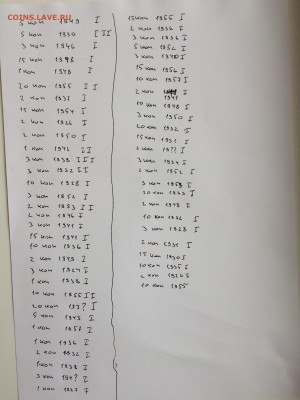 COINS.LAVE.RU
5 коп 1949 I
5 коп 1930 III
3 коп 1946 I
15 коп 1948 I
1 коп 1948 I
20 коп 1955 II
2 коп 1937 I
15 коп 1954 I
2 коп 1926 I
2 коп 1950 I
1 коп 1946 II
3 коп 1938 III
3 коп 1932 II
10 коп 1928 I
3 коп 1952 I
2 коп 1953 II
2 коп 1946 I
3 коп 1941 I
15 коп 1941 I
10 коп 1936 I
2 коп 1948 I
3 коп 1924 I
1 коп 1938 I
10 коп 1955 II
20 коп 193? I
5 коп 1943 I
1 коп 1957 I
1 коп 1936 I
2 коп 1932 I
1 коп 1938 I
3 коп 194? I
1 коп 1927 I
15 коп 1955 I
2 коп 1936 I
3 коп 1936 I
5 коп 1952 I
3 коп 1940 I
15 коп 1956 I
10 коп 1957 I
2 коп 1941 I
10 коп 1948 I
3 коп 1950 I
20 коп 1932 I
15 коп 1931 I
2 коп 19?? I
3 коп 1934 I
2 коп 1952 I
3 коп 1953 I
20 коп 1933 I
2 коп 1948 I
10 коп 1936 I
3 коп 1928 I
2 коп 1931 I
15 коп 1930 I
10 коп 1935 I
2 коп 1924 I
10 коп 1955